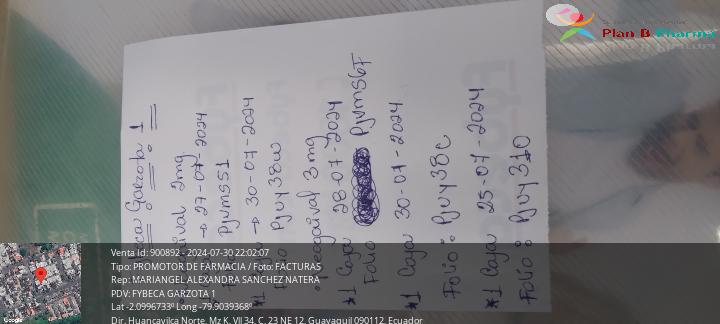 Garzota 1
2mg
→ 27-07-2024
Pjvms51
→ 30-07-2024
Pjvy38w
3mg
*1 Caja 28-07-2024
Folio Pjvms67F
*1 Caja 30-07-2024
Folio : Pjvy38c
*1 Caja 25-07-2024
Folio : Pjvy310
Plan B Pharma
Google
Venta Id: 900892 - 2024-07-30 22:02:07
Tipo: PROMOTOR DE FARMACIA / Foto: FACTURAS
Rep: MARIANGEL ALEXANDRA SANCHEZ NATERA
PDV: FYBECA GARZOTA 1
Lat -2.0996733º Long -79.9039368º
Dir. Huancavilca Norte, Mz K, Vll 34, C. 23 NE 12, Guayaquil 090112, Ecuador